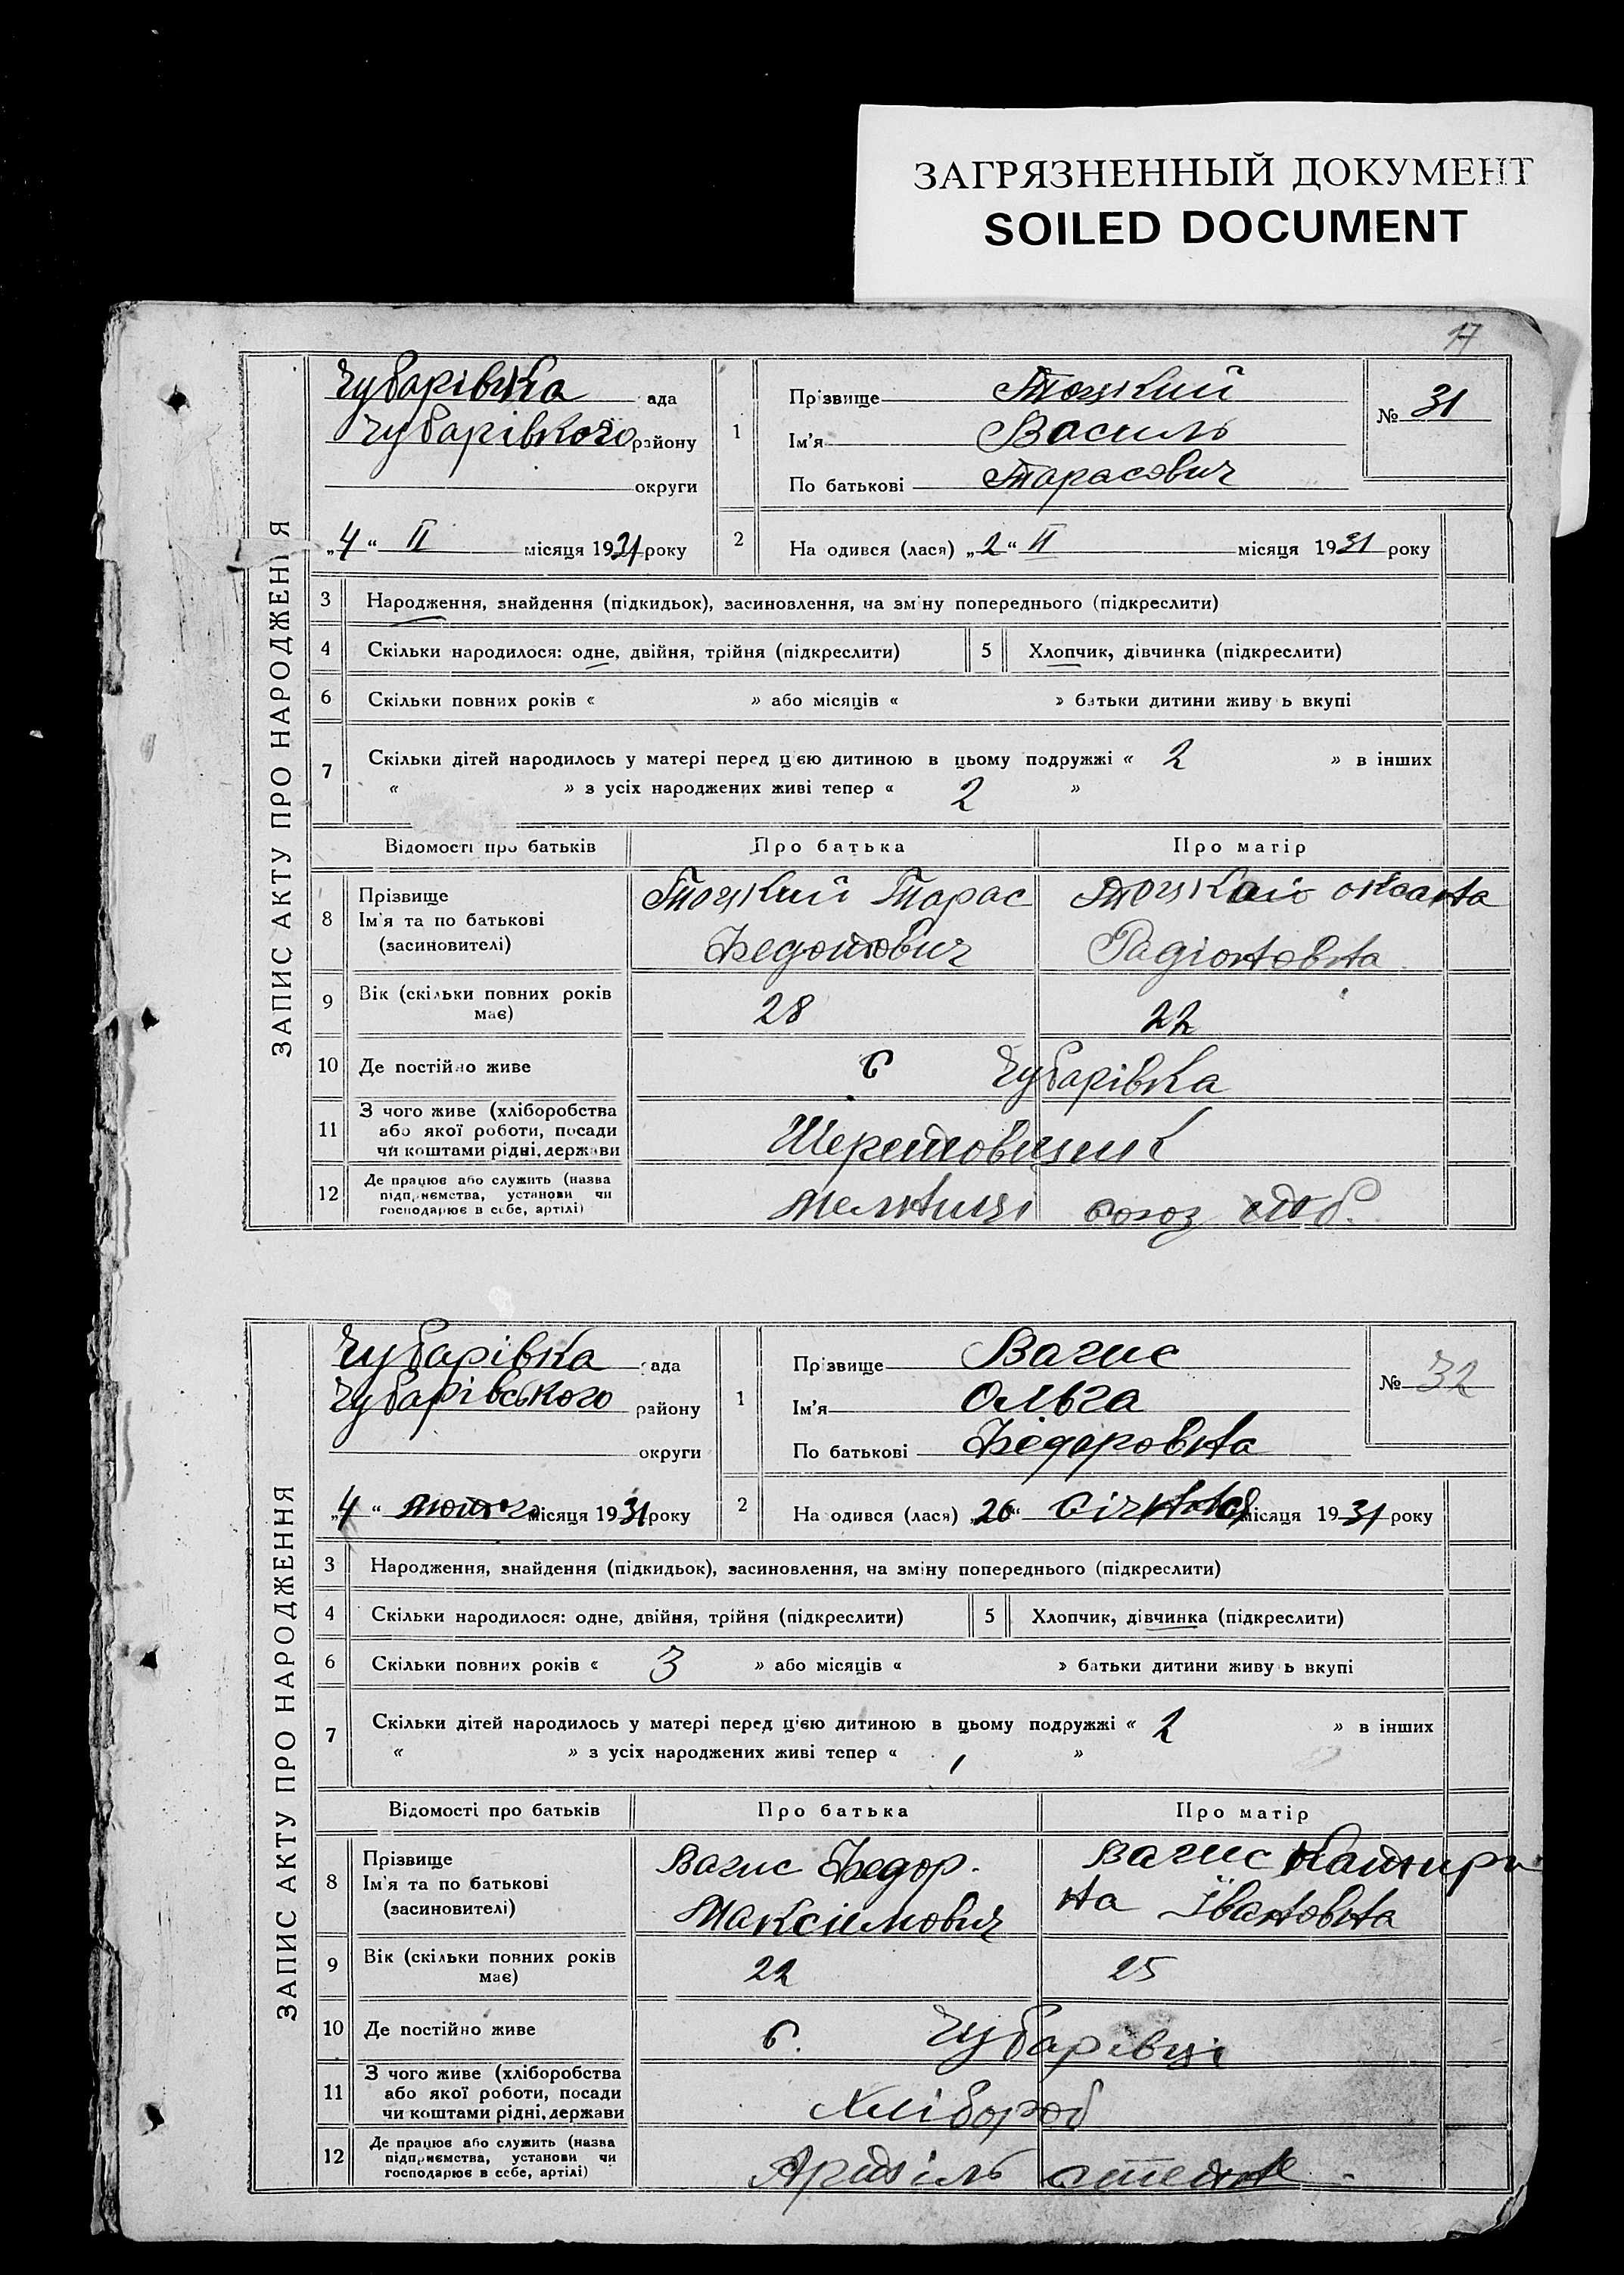 ЗАГРЯЗНЕННЫЙ ДОКУМЕНТ
SOILED DOCUMENT
17
ЗАПИС АКТУ ПРО НАРОДЖЕННЯ
Чубарівка ада
Чубарівкого району
округи
„4“ II місяця 1931 року
1
Прізвище Тоцкий
Ім'я Василь
По батькові Тарасович
№ 31
2 На одився (лася) „2“ II місяця 1931 року
3 Народження, знайдення (підкидьок), засиновлення, на зміну попереднього (підкреслити)
4 Скільки народилося: одне, двійня, трійня (підкреслити) 5 Хлопчик, дівчинка (підкреслити)
6 Скільки повних років « » або місяців « » батьки дитини живу ь вкупі
7 Скільки дітей народилось у матері перед цією дитиною в цьому подружжі « 2 » в інших
« » з усіх народжених живі тепер « 2 »
Відомості про батьків Про батька Про матір
8 Прізвище
Ім'я та по батькові
(засиновителі)
Тоцкий Тарас
Федотович
Радіоновна
9 Вік (скільки повних років
має)
28 22
10 Де постійно живе с Чубарівка
11 З чого живе (хліборобства
або якої роботи, посади
чи коштами рідні, держави
12 Де працює або служить (назва
підприємства, установи чи
господарює в себе, артілі)
союз
ЗАПИС АКТУ ПРО НАРОДЖЕННЯ
Чубарівка ада
Чубарівського району
округи
„4“ лютого місяця 1931 року
1
Прізвище Вагис
Ім'я Ольга
По батькові Фёдоровна
№ 32
2 На одився (лася) „20“ Січня місяця 1931 року
3 Народження, знайдення (підкидьок), засиновлення, на зміну попереднього (підкреслити)
4 Скільки народилося: одне, двійня, трійня (підкреслити) 5 Хлопчик, дівчинка (підкреслити)
6 Скільки повних років « 3 » або місяців « » батьки дитини живу ь вкупі
7 Скільки дітей народилось у матері перед цією дитиною в цьому подружжі « 2 » в інших
« » з усіх народжених живі тепер « 1 »
Відомості про батьків Про батька Про матір
8 Прізвище
Ім'я та по батькові
(засиновителі)
Вагис Федор.
Максимович
Вагис Катири
на Івановна
9 Вік (скільки повних років
має)
22 25
10 Де постійно живе с. Чубарівці
11 З чого живе (хліборобства
або якої роботи, посади
чи коштами рідні, держави
Хлібороб
12 Де працює або служить (назва
підприємства, установи чи
господарює в себе, артілі)
Артіль